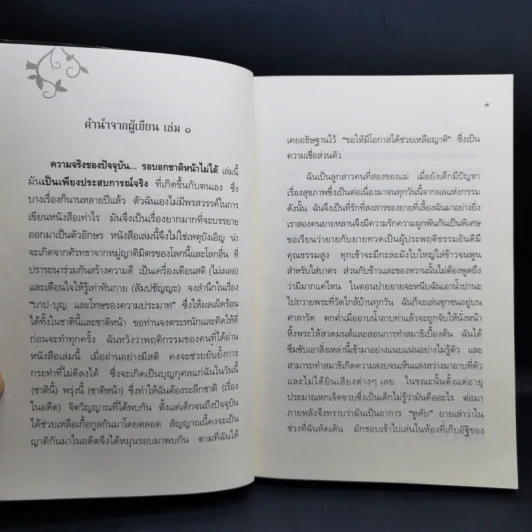 คำนำจากผู้เขียน เล่ม ๑
ความจริงของปัจจุบัน... รอบอกชาติหน้าไม่ได้ เล่มนี้
มันเป็นเพียงประสบการณ์จริง ที่เกิดขึ้นกับตนเอง ซึ่ง
บางเรื่องก็นานหลายปีแล้ว ด้วยฉันเองไม่มีพรสวรรค์ในการ
เขียนหนังสือเท่าไร มันจึงเป็นเรื่องยากมากที่จะบรรยาย
ออกมาเป็นตัวอักษร หนังสือเล่มนี้จึงไม่ใช่เหตุบังเอิญ น่า
จะเกิดจากศรัทธาจากหมู่ญาติมิตรของโลกนี้และโลกอื่น ที่
ปรารถนาร่วมกันสร้างความดี เป็นเครื่องเตือนสติ (ไม่เผลอ)
และเตือนใจให้รู้เท่าทันกาย (สัมปชัญญะ) จงสำนึกในเรื่อง
"บาป-บุญ และโทษของความประมาท" ซึ่งให้ผลเผ็ดร้อน
ได้ทั้งในชาตินี้และชาติหน้า ขอท่านจงตระหนักและคิดให้ดี
ก่อนจะทำทุกครั้ง ฉันหวังว่าพฤติกรรมของคนที่ได้อ่าน
หนังสือเล่มนี้ เมื่ออ่านอย่างมีสติ คงจะช่วยยับยั้งการ
กระทำที่ไม่ดีลงได้ คงจะเกิดเป็นบุญกุศลแก่ฉันในวันนี้
(ชาตินี้) พรุ่งนี้ (ชาติหน้า) ซึ่งทำให้ฉันต้องระลึกชาติ (เรื่อง
ในอดีต) จิตวิญญาณที่ได้พบกัน ตั้งแต่เด็กจนถึงปัจจุบัน
ได้ช่วยเหลือเกื้อกูลกันมาโดยตลอด สัญญาณนี้คงจะเป็น
ญาติกันมาในอดีตจึงได้หมุนรอบมาพบกัน ตามที่ฉันได้
๗
เคยอธิษฐานไว้ "ขอให้มีโอกาสได้ช่วยเหลือญาติ" ซึ่งเป็น
ความเชื่อส่วนตัว
ฉันเป็นลูกสาวคนที่สองของแม่ เมื่อยังเด็กมีปัญหา
เรื่องสุขภาพซึ่งเป็นต่อเนื่องมาจนทุกวันนี้จากผลแห่งกรรม
ดังนั้น ฉันจึงเป็นที่รักที่สงสารของยายที่เลี้ยงฉันมาอย่างยิ่ง
เราสองคนยายหลานจึงมีความรักความผูกพันกันเป็นพิเศษ
ขอเรียนว่ายายกับยายทวดเป็นผู้ประพฤติธรรมอันดีมี
คุณธรรมสูง ทุกเช้าจะมีกะละมังใบใหญ่ใส่ข้าวจนพูน
สำหรับใส่บาตร ส่วนกับข้าวและของหวานนั้นไม่ต้องพูดถึง
ว่ามีมากแค่ไหน ในตอนบ่ายยายจะหนีบฉันเอาน้ำปานะ
ไปถวายพระที่วัดใกล้บ้านทุกวัน ฉันก็จะเล่นซุกซนอยู่บน
ศาลาวัด ตกค่ำเมื่ออาบน้ำอาบท่าแล้วจะถูกจับให้นั่งหน้า
หิ้งพระให้สวดมนต์และสอนการทำสมาธิเบื้องต้น ฉันได้
ซึมซับเอาสิ่งเหล่านี้เข้ามาอย่างแนบแน่นอย่างไม่รู้ตัว และ
สามารถทำสมาธิเกิดความสงบจนเห็นแสงสว่างมาอาบที่ตัว
และไม่ได้ยินเสียงต่างๆเลย ในขณะนั้นตั้งแต่อายุ
ประมาณหกเจ็ดขวบซึ่งเป็นเด็กไม่รู้ว่ามันคืออะไร ต่อมา
ภายหลังจึงทราบว่ามันเป็นอาการ "หูดับ" ยายเล่าว่าใน
ช่วงที่ฉันหัดเดิน มักชอบเข้าไปเล่นในห้องที่เก็บอัฐิของ